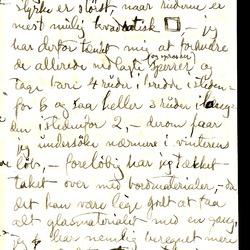 styrke er størst, naar ruderne er
mest mulig kvadratisk □ – jeg
har derfor tænkt mig at forandre
de allerede nedlagte sperrer og
tage bari 4 rüder i bredde isteden-
for 6 og saa heller 3 rüder i læng-
den istedenfor 2, – derom faar
jeg undersøke nærmere i vinterens
løb, – foreløbig har jeg tækket
taket over med bordmaterialer, – da
det kan være lige godt at faa
alt glasmaterialet med en gang
jeg har nemlig beregnet mer